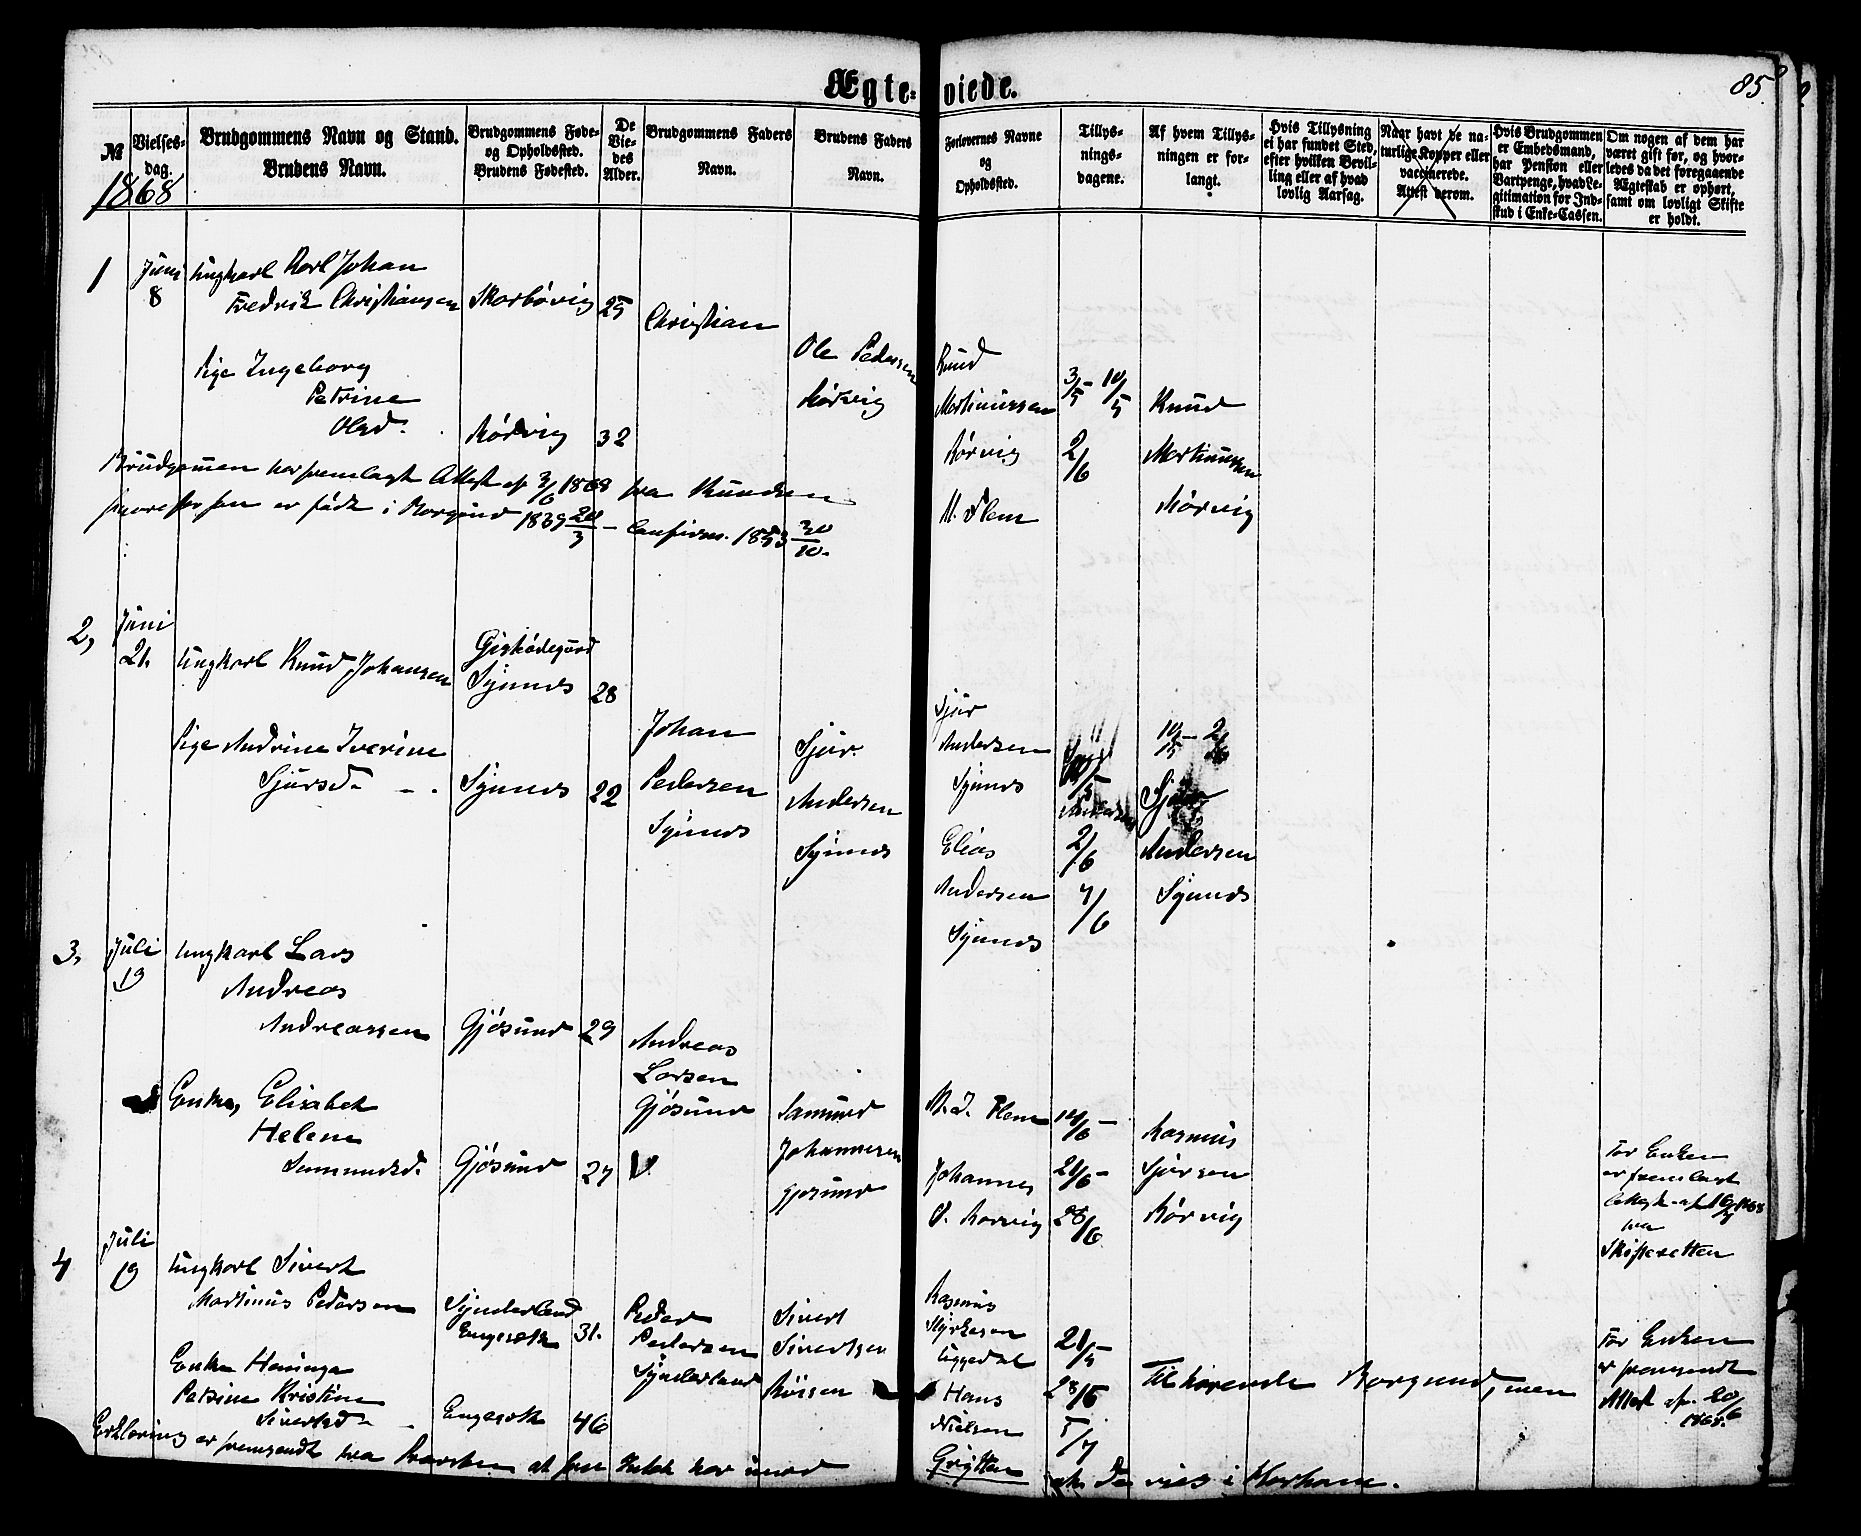 Ægteviede.
85
№
Vielsesdag.
Brudgommens Navn og Stand.
Brudens Navn.
Brudgommens Føde- og Opholdssted.
Brudens Fødested.
De Viedes Alder.
Brudgommens Faders Navn.
Brudens Faders Navn.
Forlovernes Navne og Opholdssted.
Tillysningsdagene.
Af hvem Tillysningen er forlangt.
Hvis Tillysning ei har fundet Sted, efter hvilken Bevilling eller af hvad lovlig Aarsag.
Naar havt de naturlige Kopper eller vaccinerede. Attest derom.
Hvis Brudgommen er Embedsmand, har Pension eller Vartpenge, hvad Legitimation for Indskud i Enke-Cassen.
Om nogen af dem har været gift før, og hvorledes da det foregaaende Ægteskab er ophørt, samt om lovligt Skifte er holdt.
1868
1
Juni 8
Ungkarl Karl Johan
Fredrik Christiansen
Skarbøvig
25
Christian
Pige Ingeborg
Petrine
Olsd.
Rørvig
32
Ole Pedersen
Rørvig
Knud
Martinussen
Rørvig
M. Flem
3/5 - 10/5
2/6
Knud
Martinussen
Rørvig
Brudgommen har fremlagt Attest af 3/6 1868 fra Knudsen
hvorefter han er født i Borgund 1839 20/3 - Confirm. 1853 30/10.
2,
Juni
21.
Ungkarl Knud Johansen
Giskødegaard
Synnes
28
Pige Andrine Iverine
Sjursd.
Synnes
22
Johan
Pedersen
Synnes
Sjur
Andersen
Synnes
Sjur
Andersen
Synnes
Elias
Andersen
Synnes
2/6
7/6
Andersen
Synnes
3,
Juli
19
Ungkarl Lars
Andreas
Andreassen
Gjøsund
29
Andreas
Larsen
Gjøsund
Enke, Elisabet
Helene
Samundsd.
Gjøsund
27
Samund
Johannesen
Gjøsund
M. J. Flem
Johannes
O. Rørvig
14/6 -
21/6 -
28/6
Rasmus
Sjursen
Rørvig
For Enken
er fremlagt
Attest af 16/7 1868
fra
Skifteretten
4
Juli
19
Ungkarl Sivert
Martinus Pedersen
Synderland
Engesæth
31.
Peder
Pedersen
Synderland
Enke Hansina
Petrine Kristine
Sivertsd.
Engesæth
46
Sivert
Sivertsen
Rasmus
Styrkesen
Uggedal
Hans
Nielsen
Grytten
21/5 -
28/5
5/7
Tilhørende Borgund, men
For Enken
er fremsendt
Attest af 20/6
1868.
Erklæring er fremsendt fra Præsten at han Intet har imod
at de vies i Harham.